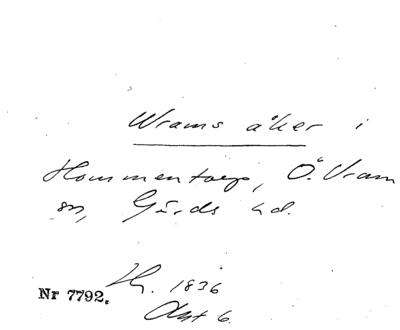 Wrams åker i
Hommentorp, Ö. Vram
sn, Gärds hd.
Nr 7792.
1836
Akt 6.